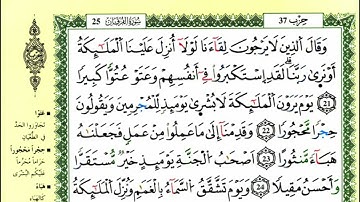 حزب 37
سُورَةُ الفُرْقَان 25
وَقَالَ الَّذِينَ لَا يَرْجُونَ لِقَاءَنَا لَوْلَا أُنزِلَ عَلَيْنَا الْمَلَٰئِكَةُ
أَوْ نَرَىٰ رَبَّنَا لَقَدِ اسْتَكْبَرُوا فِي أَنفُسِهِمْ وَعَتَوْ عُتُوًّا كَبِيرًا
21 يَوْمَ يَرَوْنَ الْمَلَٰئِكَةَ لَا بُشْرَىٰ يَوْمَئِذٍ لِّلْمُجْرِمِينَ وَيَقُولُونَ
حِجْرًا مَّحْجُورًا 22 وَقَدِمْنَا إِلَىٰ مَا عَمِلُوا مِنْ عَمَلٍ فَجَعَلْنَٰهُ
هَبَاءً مَّنثُورًا 23 أَصْحَٰبُ الْجَنَّةِ يَوْمَئِذٍ خَيْرٌ مُّسْتَقَرًّا
وَأَحْسَنُ مَقِيلًا 24 وَيَوْمَ تَشَقَّقُ السَّمَاءُ بِالْغَمَٰمِ وَنُزِّلَ الْمَلَٰئِكَةُ
عَتَوْا
تجاوزوا الحدّ
في الطّغيان
حِجْراً مَحْجُوراً
حراماً محرّماً
عليكم البشرى
هَبَاءً
كالهباء